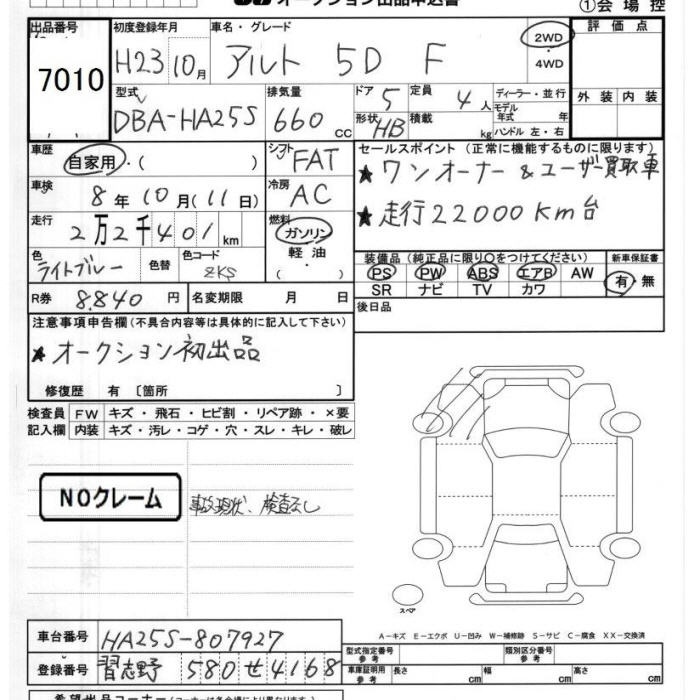 オークション出品申込書 ①会場控
出品番号 初度登録年月 車名・グレード 2WD 評価点
7010 H23 10月 アルト 5D F ・4WD
型式 排気量 ドア 定員 ディーラー・並行 外装 内装
DBA-HA25S 660cc 5 4人 モデル年式 年
形状 HB 積載 kg ハンドル 左・右
車歴 自家用・( ) シフト FAT セールスポイント(正常に機能するものに限ります)
★ワンオーナー&ユーザー買取車
車検 8年10月(11日) 冷房 AC
★走行22000Km台
走行 2万2千401km 燃料 ガソリン
軽油
( )
装備品(純正品に限り○をつけてください) 新車保証書
色 ライトブルー 色替 色コード ZKS
PS PW ABS エアB AW 有・無
SR ナビ TV カワ
R券 8.840円 名変期限 月 日 後日品
注意事項申告欄(不具合内容等は具体的に記入して下さい)
★オークション初出品
修復歴 有〔箇所 〕
検査員 FW キズ・飛石・ヒビ割・リペア跡・×要
記入欄 内装 キズ・汚レ・コゲ・穴・スレ・キレ・破レ
NOクレーム 事故現状、検査なし
スペア
A-キズ E-エクボ U-凹み W-補修跡 S-サビ C-腐食 XX-交換済
車台番号 HA25S-807927 型式指定番号 参考 類別区分番号 参考
登録番号 習志野 580 せ 4168 車庫証明用 参考 長さ cm 幅 cm 高さ cm
希望出品コーナー